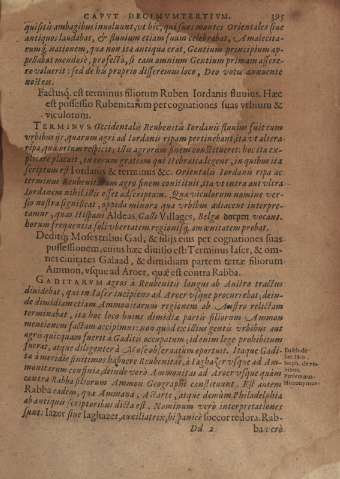 CAPVT DECIMVMTERTIVM. 395
quisitis ambagibus inuoluunt, vt hic, qui suos montes Orientales siue
antiquos laudabat, & flumina etiam suum celebrabat, Amalecita-
rumq́; nationem, qua non ita antiqua erat, Gentium principium ap-
pellabat mendosè, profectò, si eam omnium Gentium primam asse-
rere voluerit: sed de his proprio differemus loco, Deo votis annuente
nostris.
Factusq́; est terminus filiorum Ruben Iordanis fluuius. Hæc
est possessio Rubenitarum per cognationes suas vrbium &
viculorum.
TERMINVS Occidentalis Reubenitis Iordanis fluuius fuit cum
vrbibus
ripa, qua ortum respicit, illis agrorum finem constitueret: hoc ita ex-
plicare placuit, in eorum gratiam qui Hebraicè legent, in quibus ita
scriptum est Iordanis & terminus &c. Orientalis Iordanis ripa ac
terminus Reubenitarum agro finem constituit, ita vt intra aut vltra
Iordanem nihil illis esset adscriptum. Qua viculorum nomine ver-
sio nostra significat, oppida minora qua vrbibus adiacent interpre-
tamur, quas Hispani Aldeas, Galli Villages, Belgæ dorpen vocant:
horum frequentia soli vbertatem regionisq́; amœnitatem probat.
Deditq́; Moses tribui Gad, & filijs eius per cognationes suas
possessionem, cuius hæc diuisio est: Terminus Iaser, & om-
nes ciuitates Galaad, & dimidiam partem terræ filiorum
Ammon, vsque ad Aroer, quæ est contra Rabba.
GADITARVM agros à Reubenitis longus ab Austro tractus
diuidebat, qui in Iaser incipiens ad Aroer vsque procurrebat, dein-
de dimidiam etiam Ammonitarum regionem ab Austro relictam
terminabat, ita hoc loco huius dimidiæ partis filiorum Ammon
mentionem factam accipimus: non quòd ex illius gentis vrbibus aut
agris quicquam fuerit à Gaditis occupatum, id enim lege prohibitum
fuerat, atque diligenter à Mose obseruatum oportuit. Itaque Gadi-
ta à meridie
monitarum confinia, deinde verò Ammonitas ad Aroer vsque quæ
contra Rabba filiorum Ammon Geographi constituunt. Est autem
Rabba eadem, quæ Ammana, Astarte, atque demùm Philadelphia
ab antiquis scriptoribus dicta est. Nominum verò interpretationes
sunt. Iazer siue Iaghazer, auxiliatrix, hispanicè soccorredora. Rab-
Dd 2 ba verò